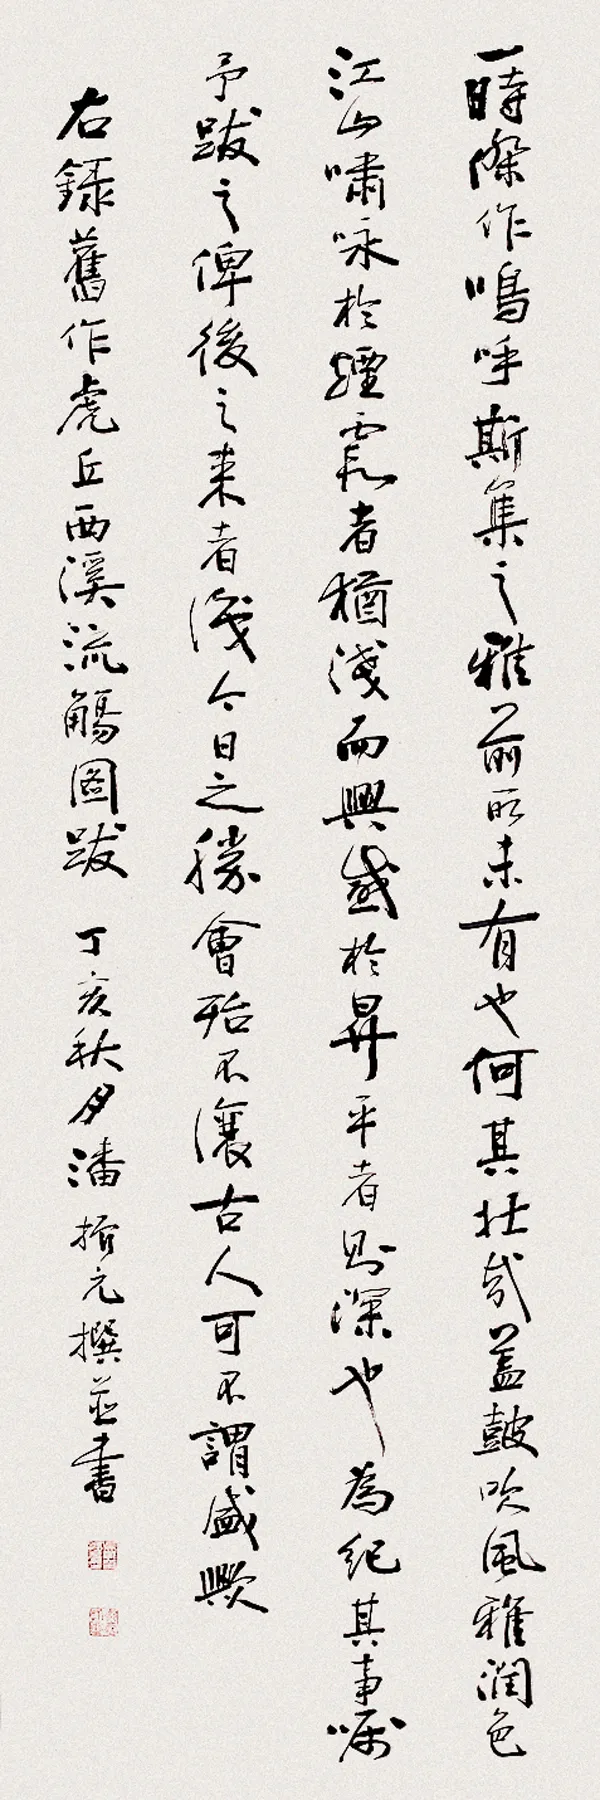 一時傑作嗚呼斯集之雅前所未有也何其壯哉蓋鼓吹風雅潤色
江山嘯咏於煙霞者猶淺而興感於昇平者則深也為紀其事囑
予跋之俾後之来者識今日之勝會殆不讓古人可不謂盛歟
右録舊作虎丘西溪流觴圖跋 丁亥秋夕潘振元撰並書